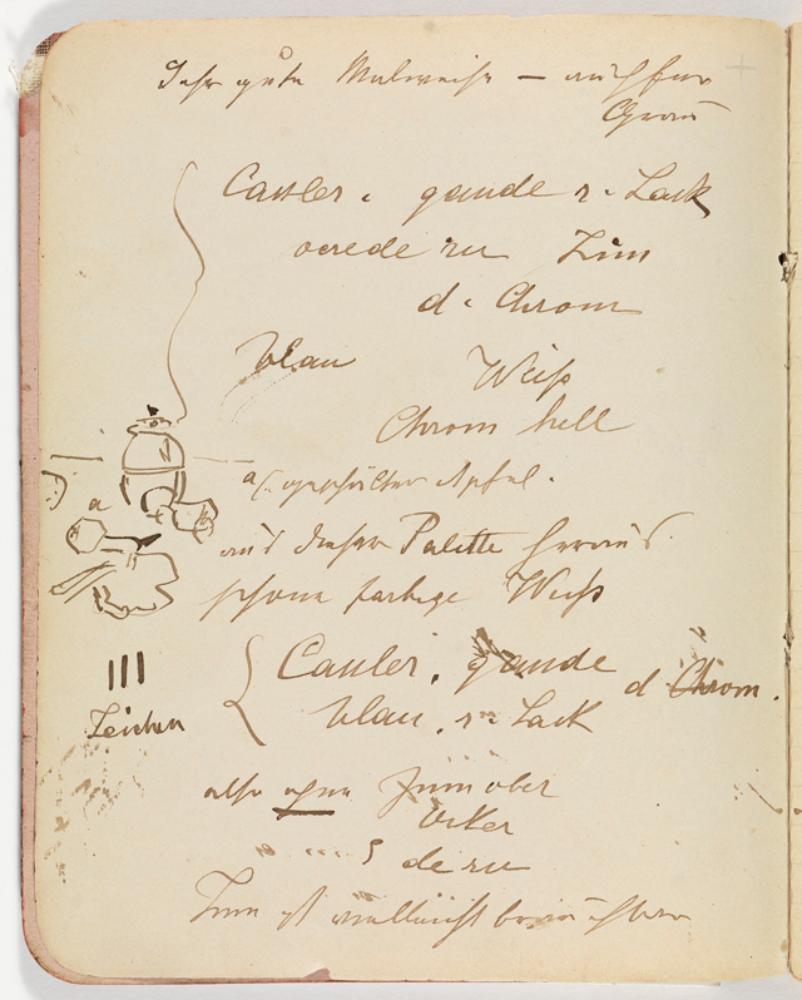 Sehr gute Malweise – auch für
Grau
Cassler. gaude r. Lack
verede ru Zinn
d. Chrom
blau Weiß
Chrom hell
a geschälter Apfel.
a
aus dieser Palette heraus
schöne farbige Weiß
III
Zeichen
Cassler, gaude d Chrom.
blau, r. Lack
also ohne Zinnober
Ocker
de ru
Zinn ist vielleicht